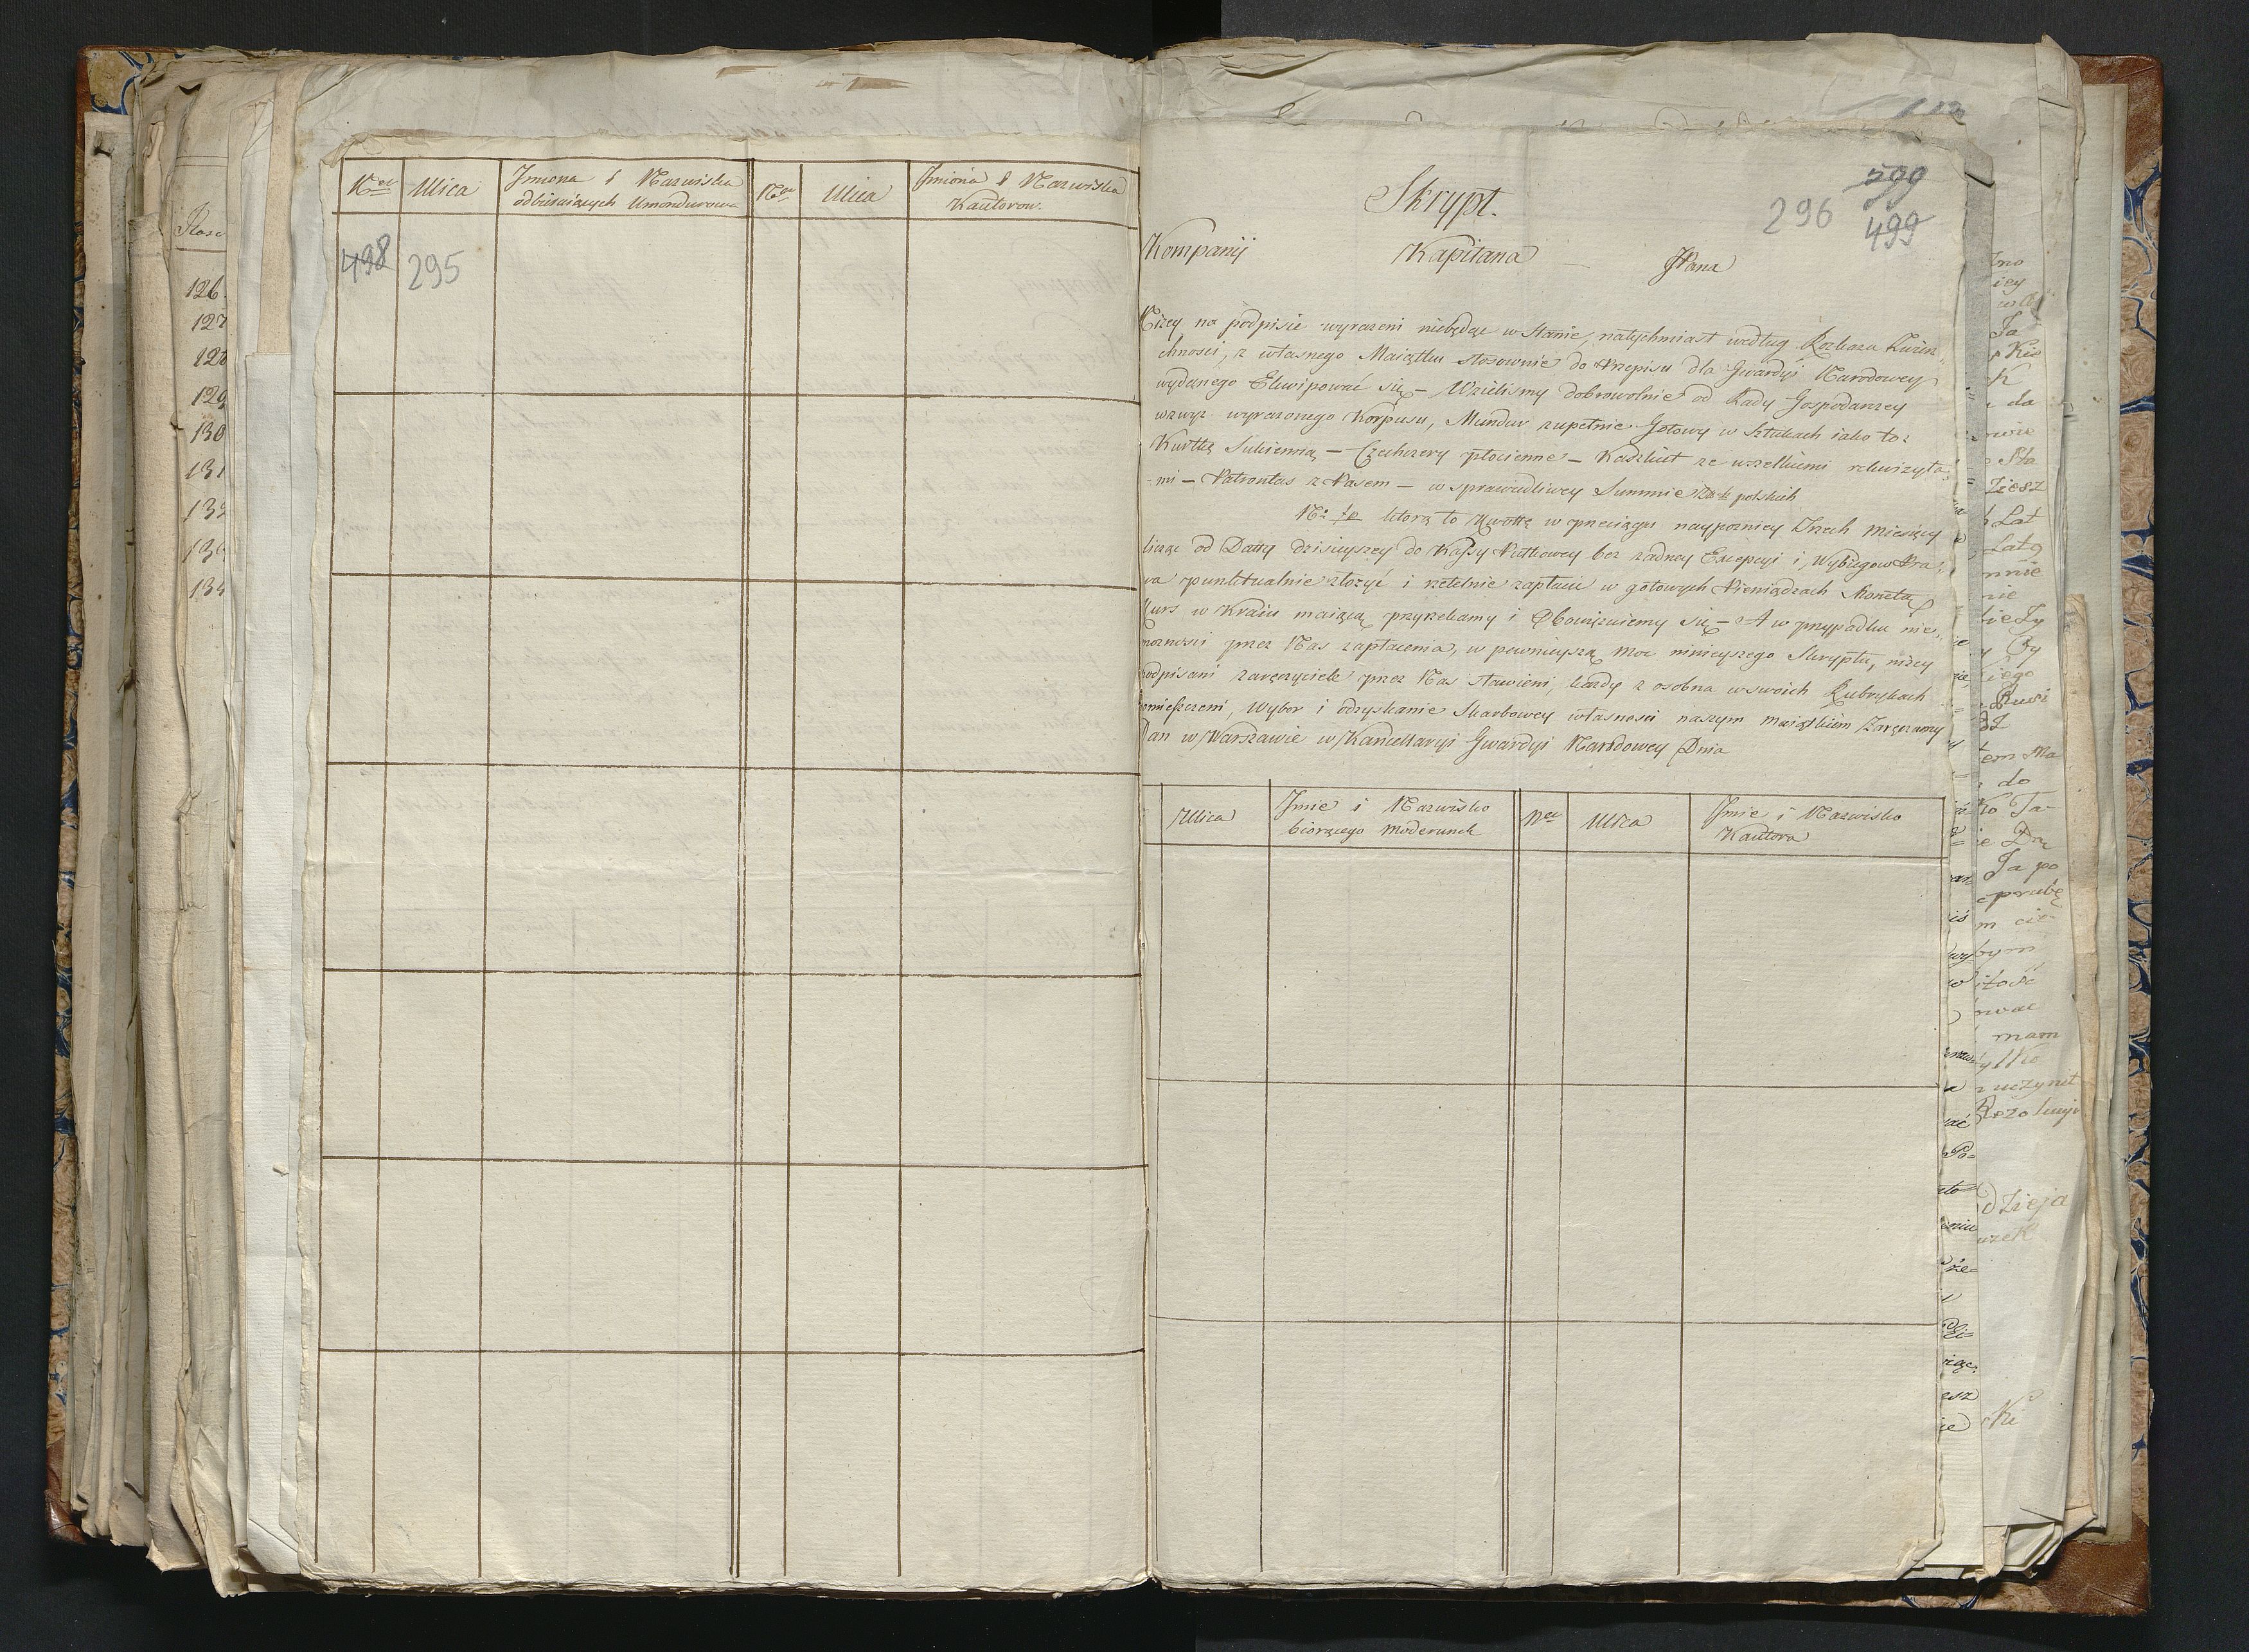 Ulica
Imiona i Nazwiska
odbieraiących Umondurowa
Ulica
Imiona i Nazwiska
Kautorow.
498
295
126.
127
128
129
130
131
132
Skrypt.
296
499
Kompanij Kapitana — Pana
Niżey na podpisie wyrażeni niebędąc w Stanie, natychmiast według Rozkazu Zwierz„
chnosci, z własnego Maiątku stosownie do Przepisu dla Gwardyi Narodowey
wydanego Ekwipować się — Wzieliśmy dobrowolnie od Rady Gospodarzey
wzwyż wyrażonego Korpusu, Mundur zupełnie Gotowy w Sztukach iako to:
Kurtkę Sukienną — Czechczery płocienne — Kaszkiet ze wszelkiemi rekwizyta„
mi — Patrontas z Pasem — w sprawiedliwey Summie polskich
którą to Kwottę w przeciągu naypozniey Trzech Miesięcy
licząc od Datty dzisieyszey do Kassy Pułkowey bez zadney Excepcyi i Wybiegow Pra„
wa punktualnie złożyć i rzetelnie zapłacić w gotowych Pieniądzach Monetą
Kurs w Kraiu maiącą przyrzekamy i Obowiązuiemy się — A w przypadku nie„
możności przez Nas zapłacenia, w pewnieyszą moc ninieyszego Skryptu, niżey
podpisani zaręczyciele przez Nas stawieni, każdy z osobna w swoich Rubrykach
pomieszczeni, Wybor i odzyskanie Skarbowey własności naszym maiątkiem Zaręczamy
Dan w Warszawie w Kancellaryi Gwardyi Narodowey Dnia
Ulica
Imie i Nazwisko
biorącego Moderunek
Ner
Ulica
Imie i Nazwisko
Kautora